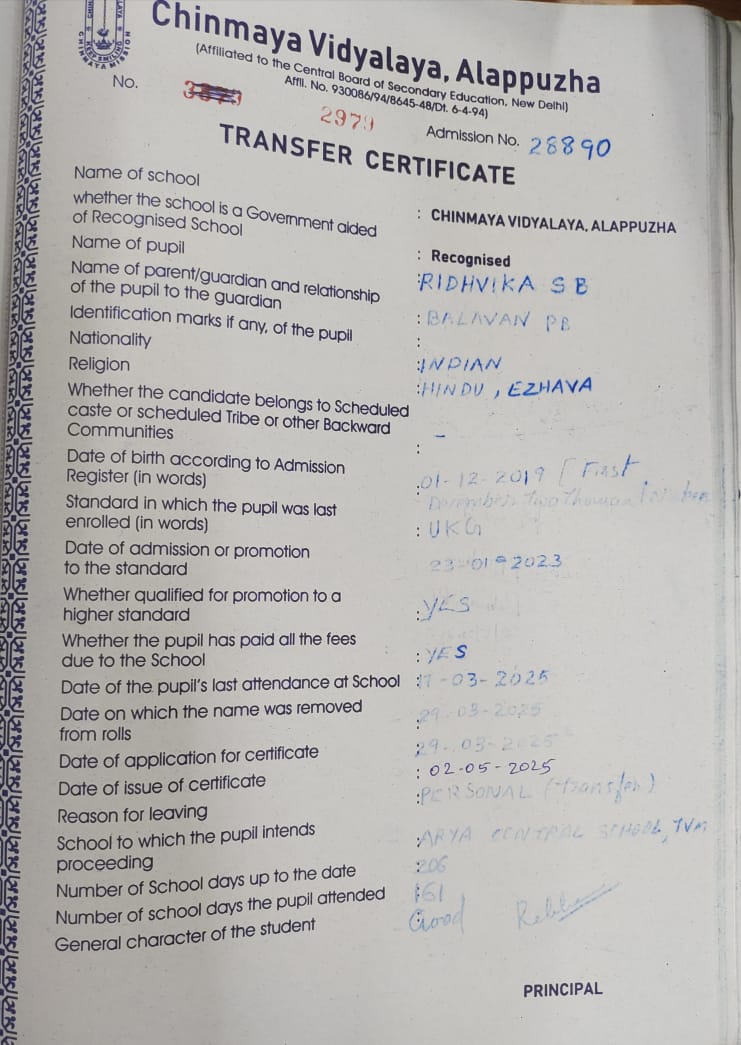 CHINMAYA MISSION
KEEP SMILING
Chinmaya Vidyalaya, Alappuzha
(Affiliated to the Central Board of Secondary Education, New Delhi)
Affil. No. 930086/94/8645-48/Dt. 6-4-94)
No. 2979
Admission No. 28890
TRANSFER CERTIFICATE
Name of school : CHINMAYA VIDYALAYA, ALAPPUZHA
whether the school is a Government aided
of Recognised School : Recognised
Name of pupil : RIDHVIKA S B
Name of parent/guardian and relationship
of the pupil to the guardian : BALAVAN PB
Identification marks if any, of the pupil :
Nationality : INDIAN
Religion : HINDU, EZHAVA
Whether the candidate belongs to Scheduled
caste or scheduled Tribe or other Backward
Communities : -
Date of birth according to Admission
Register (in words) : 01-12-2019 [First
December Two Thousand
Standard in which the pupil was last
enrolled (in words) : UKG
Date of admission or promotion
to the standard 23-01-2023
Whether qualified for promotion to a
higher standard : YES
Whether the pupil has paid all the fees
due to the School : YES
Date of the pupil's last attendance at School : 17-03-2025
Date on which the name was removed
from rolls : 29-03-2025
Date of application for certificate : 29-03-2025
Date of issue of certificate : 02-05-2025
Reason for leaving : PERSONAL (transfer)
School to which the pupil intends
proceeding : ARYA CENTRAL SCHOOL, TVM
Number of School days up to the date : 206
Number of school days the pupil attended : 161
General character of the student : Good
PRINCIPAL